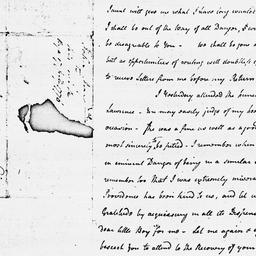 I must will give me what I have long wanted
I shall be out of the Way of all Danger, I wo
be disagreable to You - You shall be your a
bill as opportunities of writing will doubtless
to receive Letters from me before my Return
I Yesterday attended the funer
Lawrence - You may easily judge of my
occasion - She was a fine as well as a good
most sincerely to be pitied - I remember when
in eminent Danger of being in a similar
remember too that I was extremely miserab
Providence has been kind to us, and let us
Gratitude by acquiescing in all its Dispens
dear little Boy for me - Let me again &
beseech You to attend to the Recovery of your